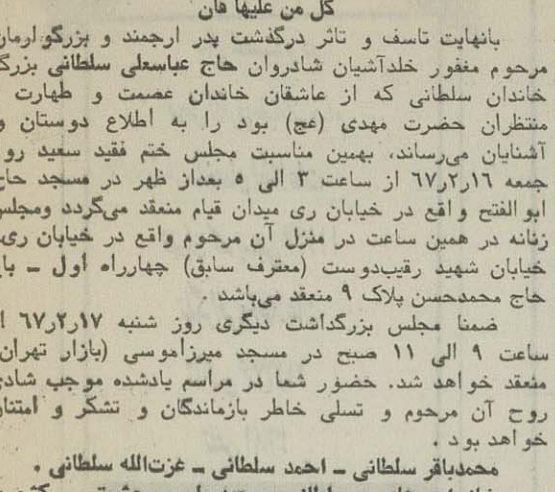 كل من عليها فان
بانهایت تاسف و تاثر درگذشت پدر ارجمند و بزرگوارمان
مرحوم مغفور خلدآشیان شادروان حاج عباسعلی سلطانی بزرگ
خاندان سلطانی که از عاشقان خاندان عصمت و طهارت و
منتظران حضرت مهدی (عج) بود را به اطلاع دوستان و
آشنایان می‌رساند، بهمین مناسبت مجلس ختم فقید سعید روز
جمعه ۶۷٫۲٫۱۶ از ساعت ۳ الی ۵ بعداز ظهر در مسجد حاج
ابوالفتح واقع در خیابان ری میدان قیام منعقد می‌گردد ومجلس
زنانه در همین ساعت در منزل آن مرحوم واقع در خیابان ری،
خیابان شهید رقیب‌دوست (معترف سابق) چهارراه اول ــ
حاج محمدحسن پلاک ۹ منعقد می‌باشد .
ضمنا مجلس بزرگداشت دیگری روز شنبه ۶۷٫۲٫۱۷ از
ساعت ۹ الی ۱۱ صبح در مسجد میرزاموسی (بازار تهران)
منعقد خواهد شد. حضور شما در مراسم یادشده موجب شادی
روح آن مرحوم و تسلی خاطر بازماندگان و تشکر و امتنان
خواهد بود .
محمدباقر سلطانی ــ احمد سلطانی ــ عزت‌الله سلطانی .